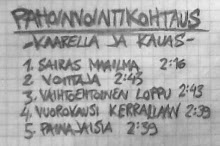 PAHOINVOINTIKOHTAUS
-KAARELLA JA KAUAS-
1. SAIRAS MAAILMA 2:16
2. VOITTAJA 2:43
3. VAIHTOEHTOINEN LOPPU 2:43
4. VUOROKAUSI KERRALLAAN 2:39
5. PAINAJAISIA 2:39